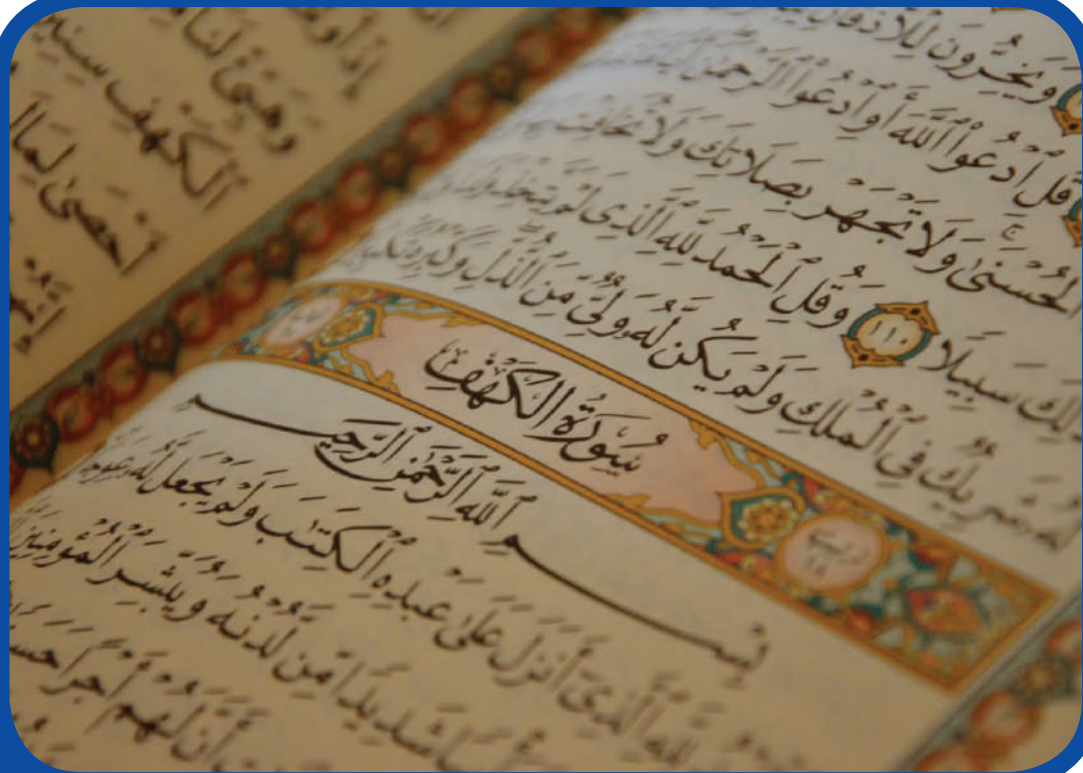 وَيَخِرُّونَ لِلْأَذْقَانِ
قُلِ ٱدْعُوا۟ ٱللَّهَ أَوِ ٱدْعُوا۟ ٱلرَّحْمَٰنَ
ٱلْحُسْنَىٰ وَلَا تَجْهَرْ بِصَلَاتِكَ وَلَا تُخَافِتْ
سَبِيلًا ١١٠ وَقُلِ ٱلْحَمْدُ لِلَّهِ ٱلَّذِى لَمْ يَتَّخِذْ وَلَدًا
لَّهُۥ شَرِيكٌ فِى ٱلْمُلْكِ وَلَمْ يَكُن لَّهُۥ وَلِىٌّ مِّنَ ٱلذُّلِّ وَكَبِّرْهُ
سُورَةُ الكَهْفِ
بِسْمِ ٱللَّهِ ٱلرَّحْمَٰنِ ٱلرَّحِيمِ
لِلَّهِ ٱلَّذِىٓ أَنزَلَ عَلَىٰ عَبْدِهِ ٱلْكِتَٰبَ وَلَمْ يَجْعَل لَّهُۥ عِوَجَا
شَدِيدًا مِّن لَّدُنْهُ وَيُبَشِّرَ ٱلْمُؤْمِنِينَ
أَنَّ لَهُمْ أَجْرًا حَسَنًا
وَهَيِّئْ لَنَا
ٱلْكَهْفِ سِنِينَ
أَحْصَىٰ لِمَا